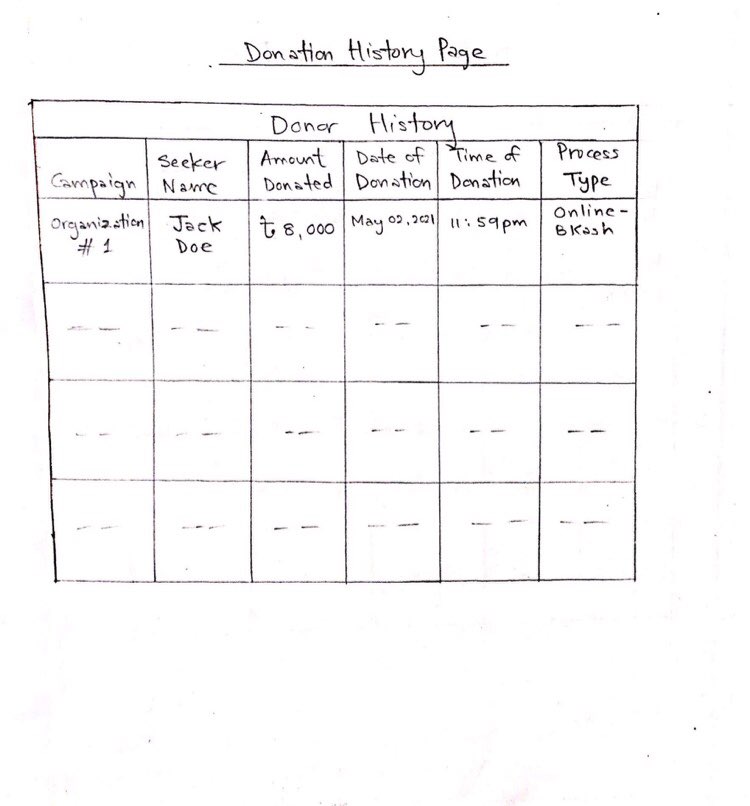 Donation History Page
Donor History
Campaign
Seeker
Name
Amount
Donated
Date of
Donation
Time of
Donation
Process
Type
Organization
# 1
Jack
Doe
৳ 8,000
May 02, 2021
11:59pm
Online-
BKash
-- -- -- -- -- --
-- -- -- -- -- --
-- -- -- -- -- --